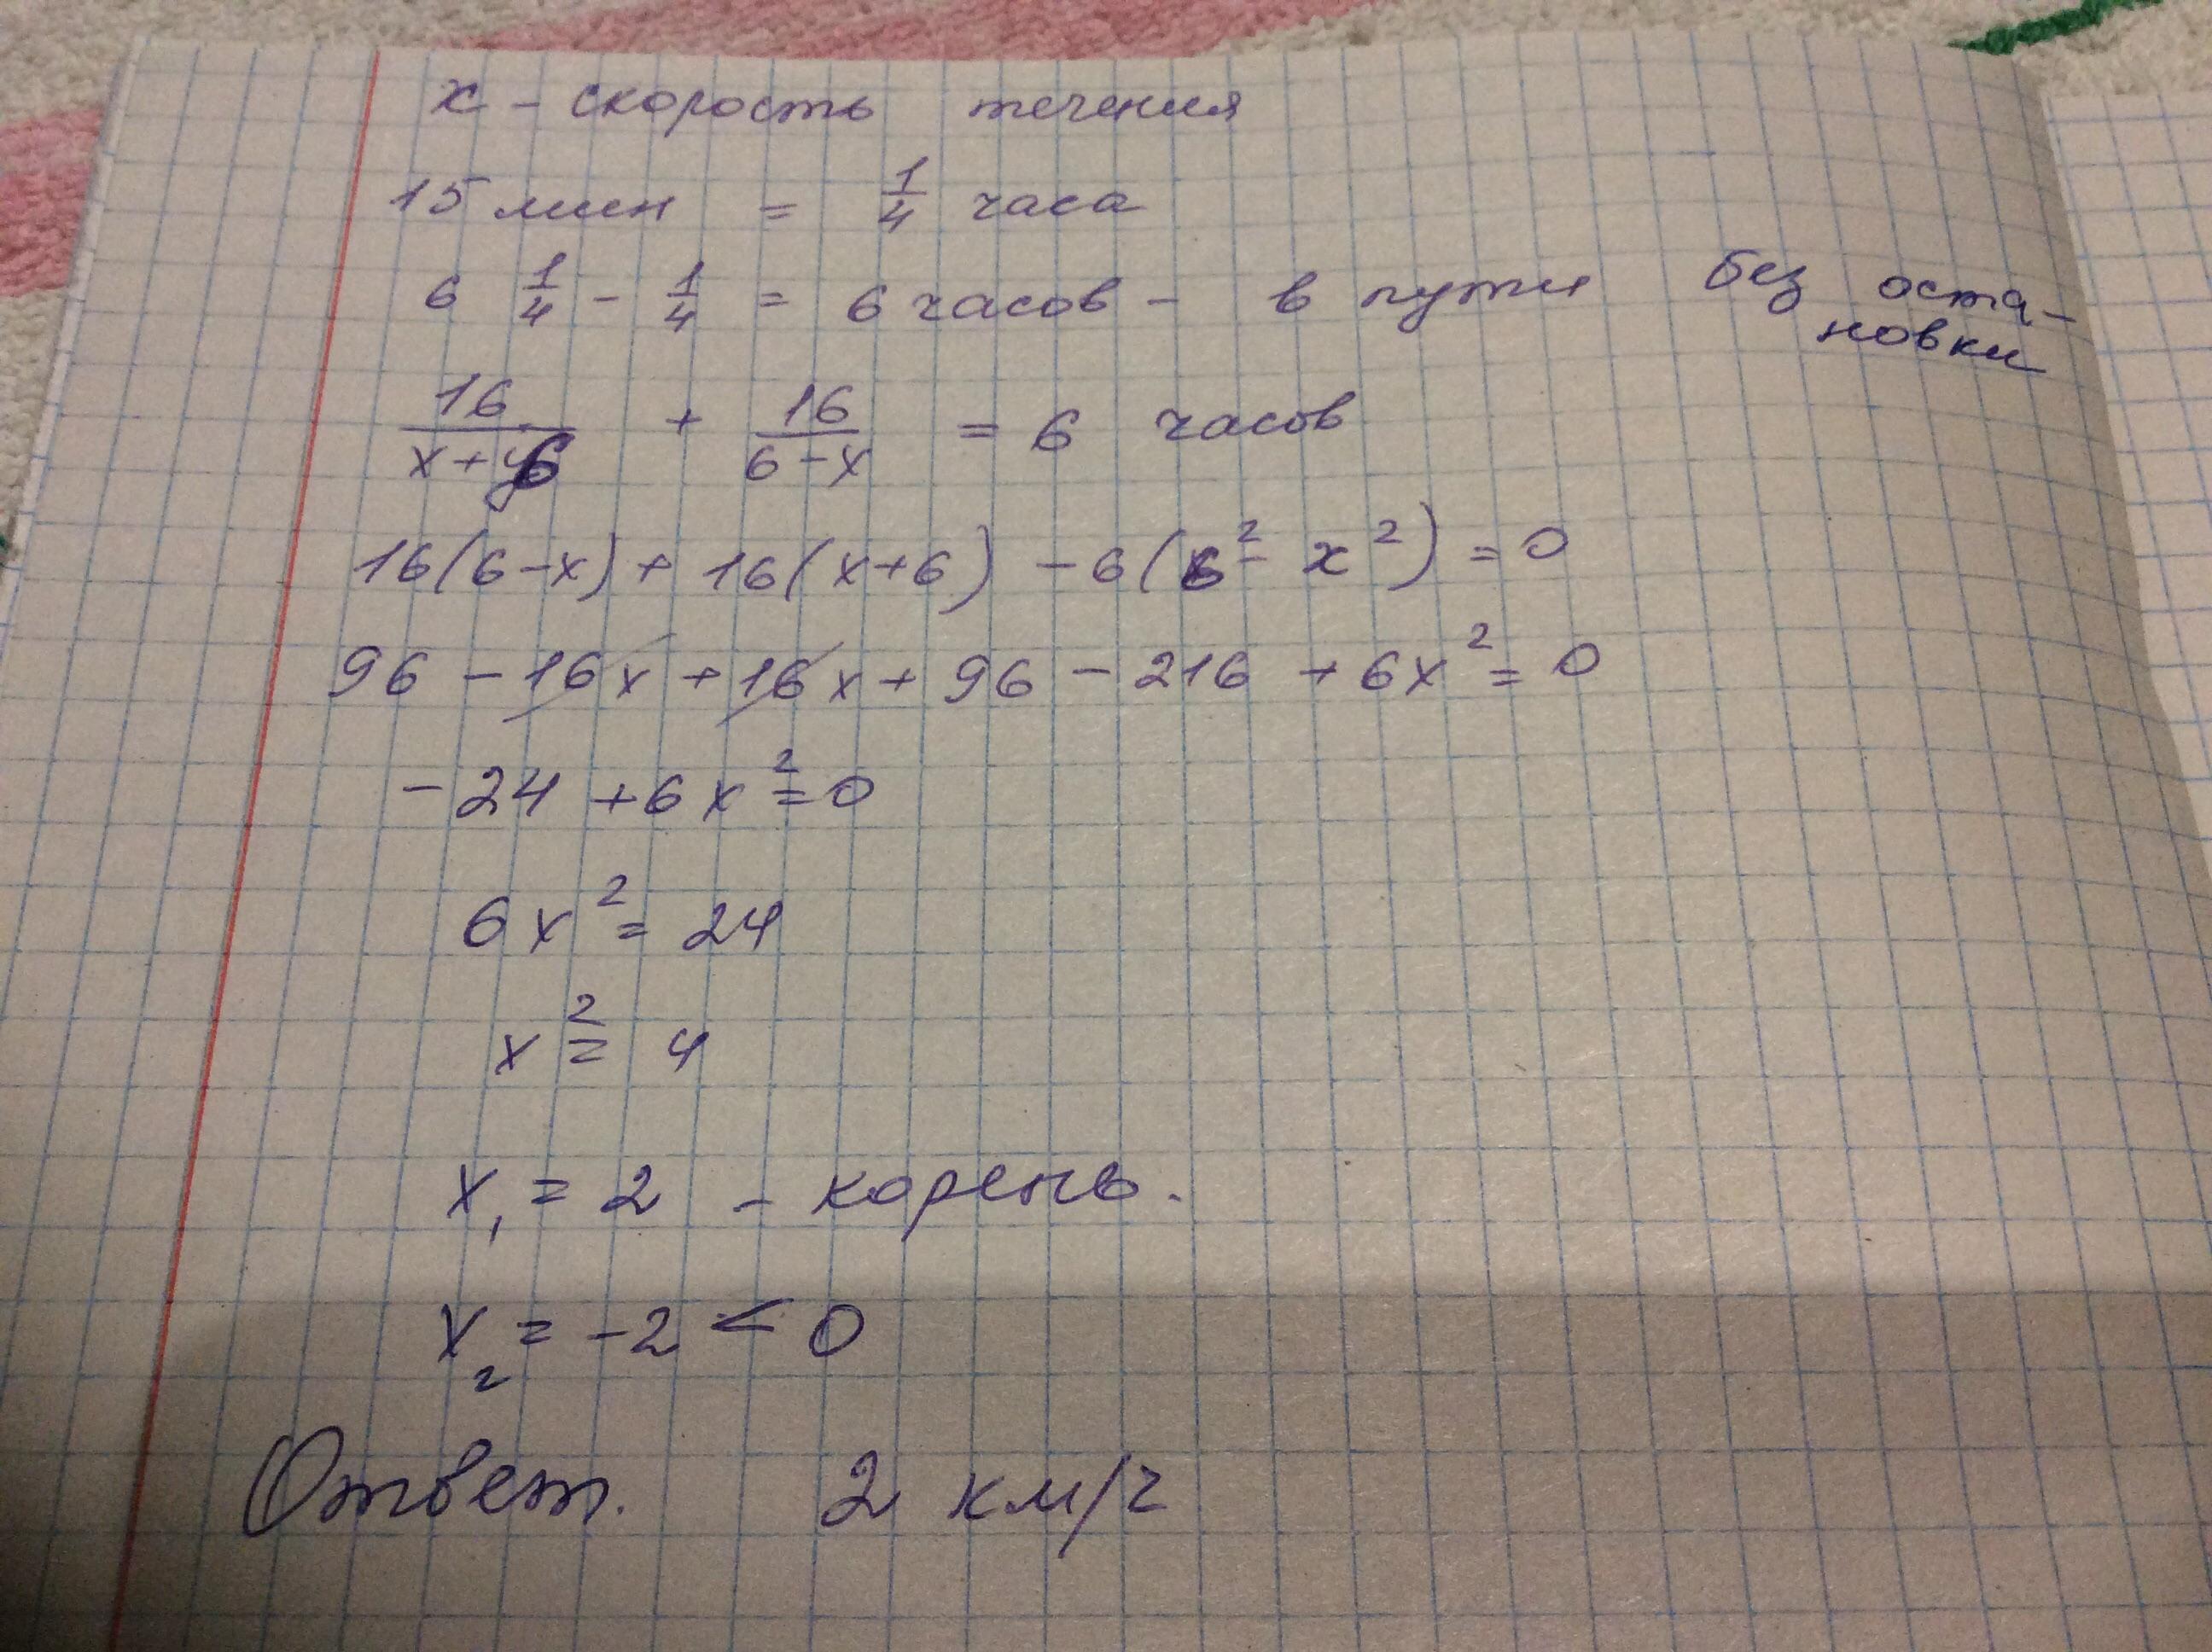 x - скорость течения
15 мин = 1/4 часа
6 1/4 - 1/4 = 6 часов - в пути без оста-
новки
16/(x+6) + 16/(6-x) = 6 часов
16(6-x) + 16(x+6) - 6(6² - x²) = 0
96 - 16x + 16x + 96 - 216 + 6x² = 0
-24 + 6x² = 0
6x² = 24
x² = 4
x₁ = 2 - корень.
x₂ = -2 < 0
Ответ. 2 км/ч